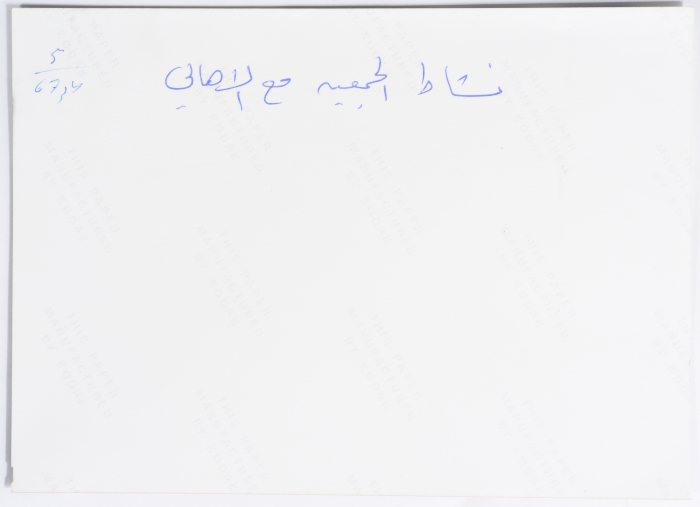 نشاط الجمعيه مع الاهالي
5
THIS PAPER
MANUFACTURED
BY KODAK